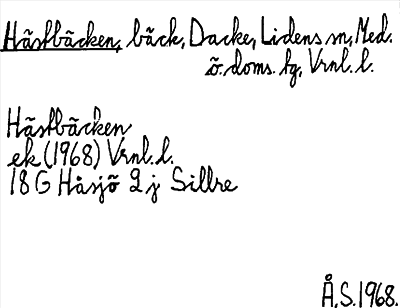 Hästbäcken, bäck, Dacke, Lidens sn, Med.
ö. doms. hg, Vrnl. l.
Hästbäcken
ek (1968) Vrnl. l.
18 G Håsjö 2 j Sillre
Å.S. 1968.